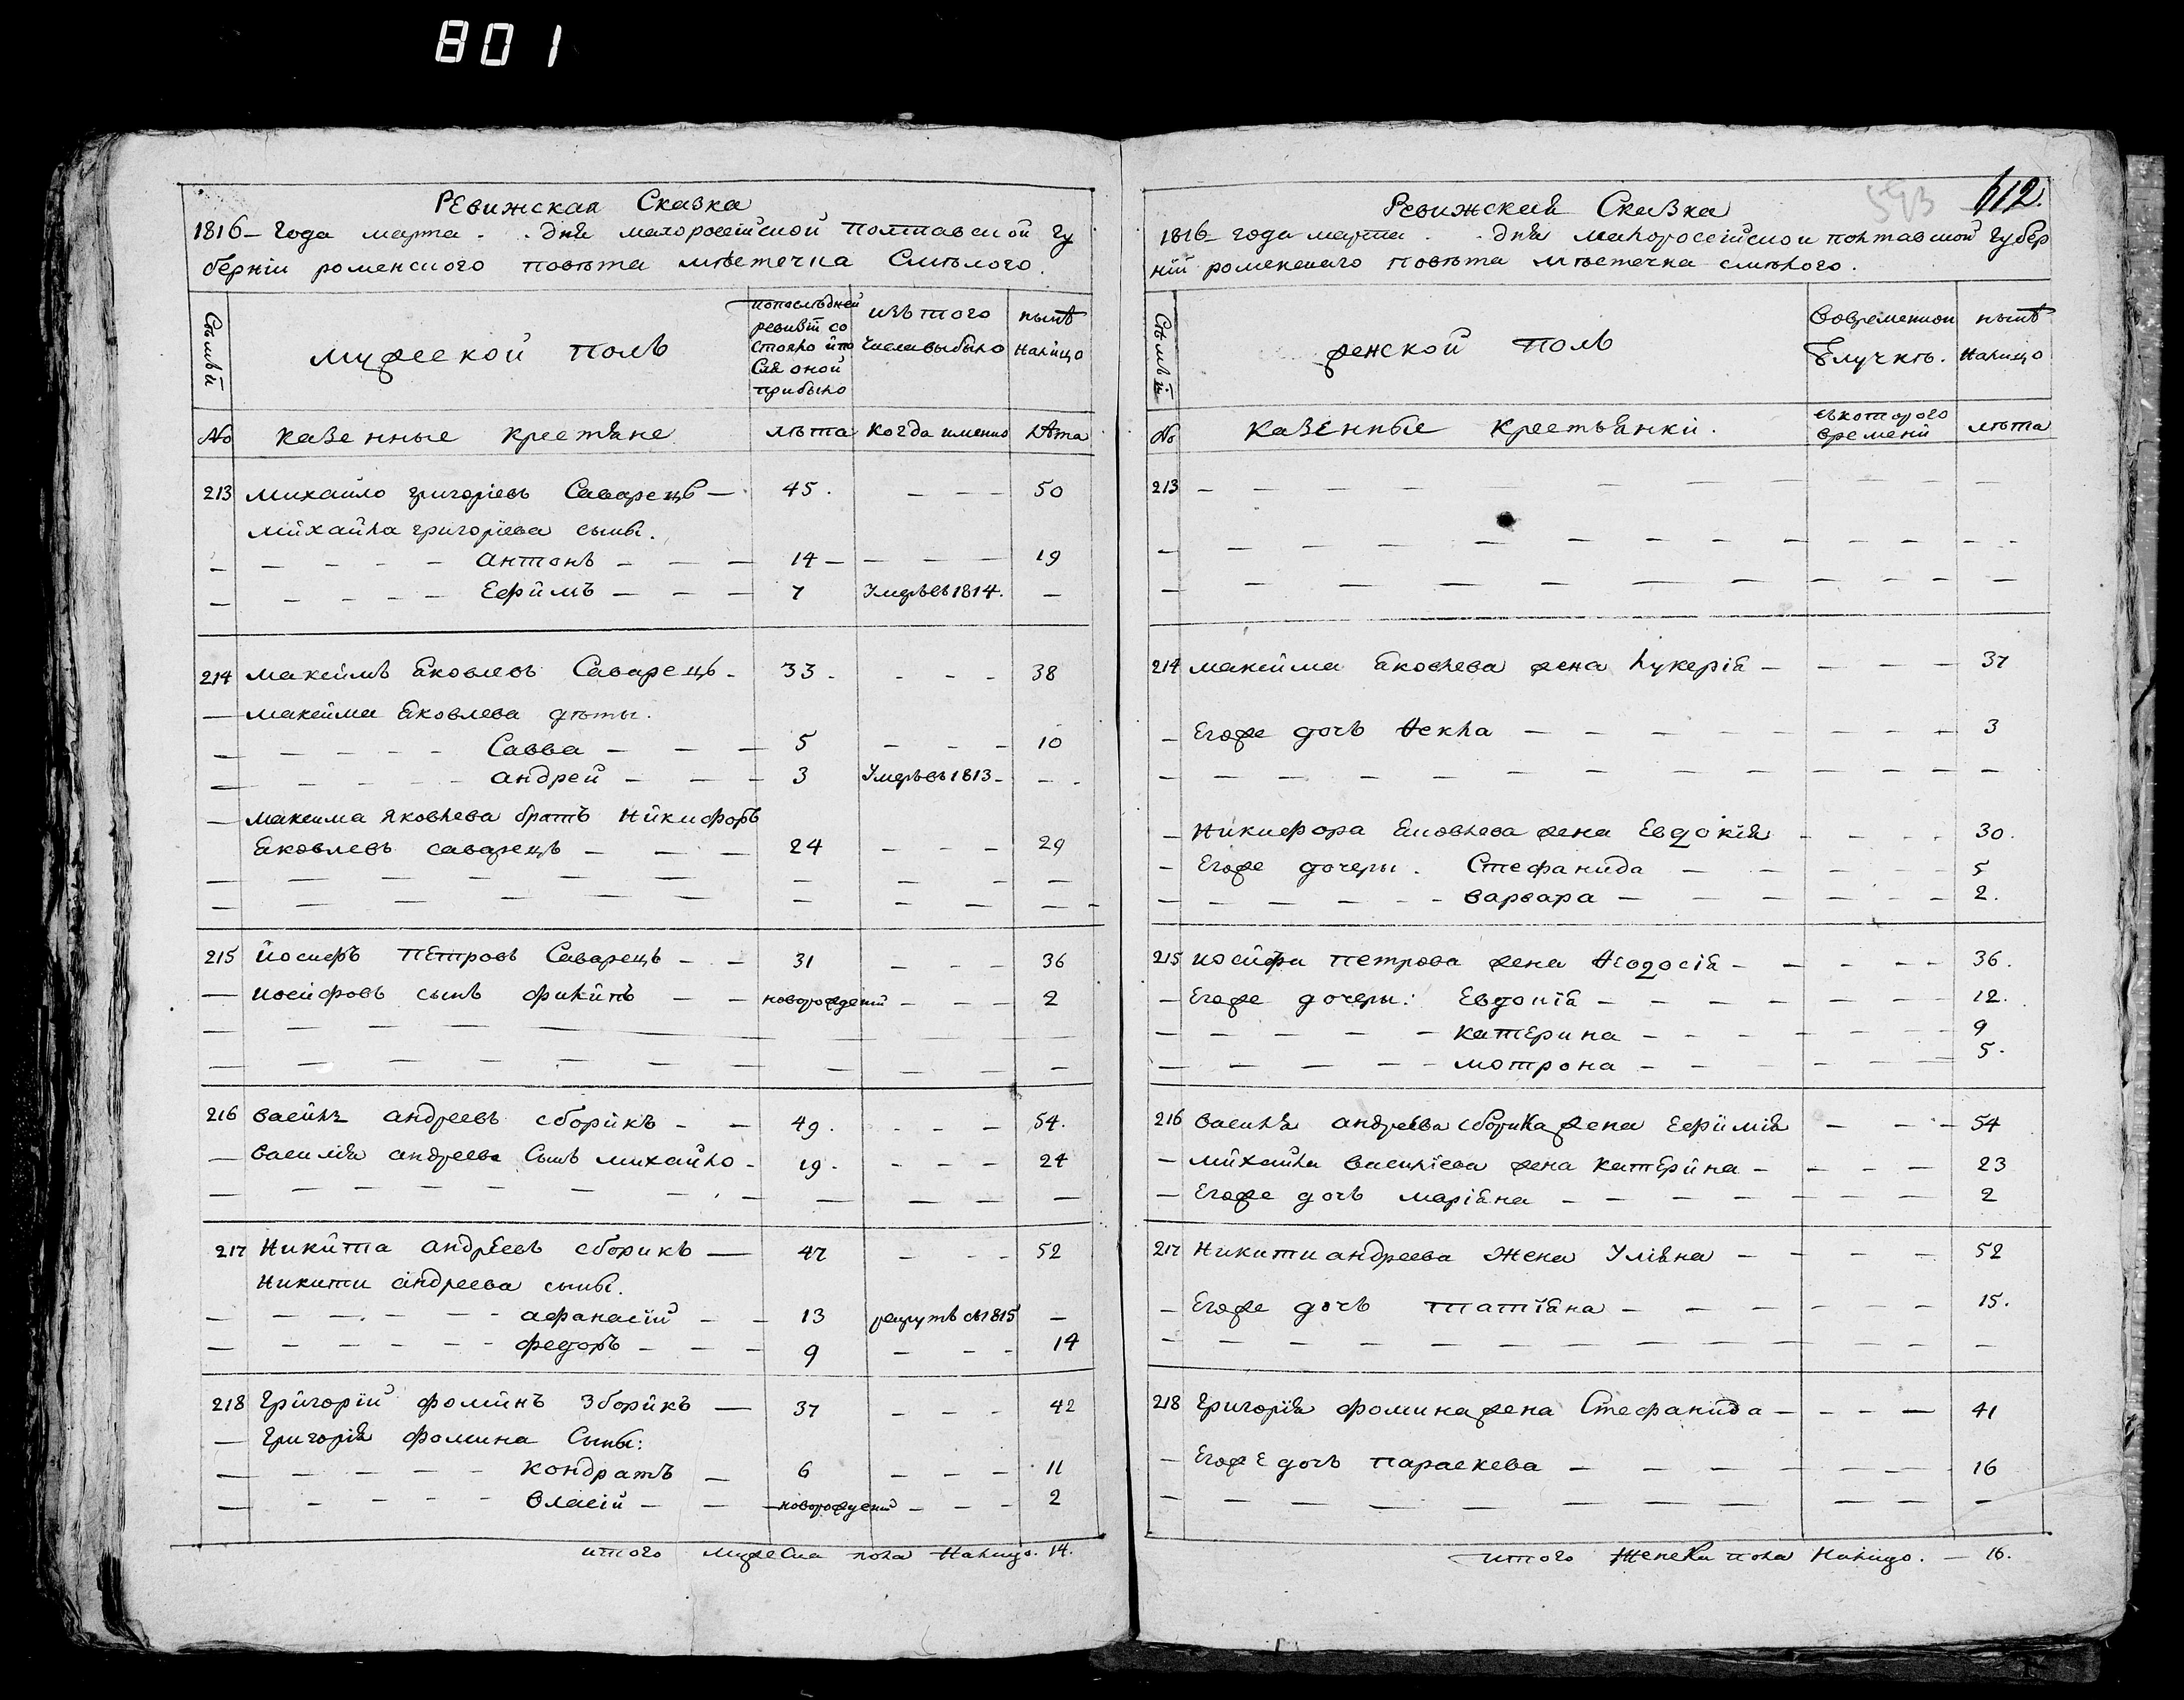 801
Ревижская Сказка
1816 – года марта . . дня малоросеійской полтавской гу
берніи роменского повѣта мѣстечка Смѣлого.
Сѣмьи
мужеской полъ
попослѣдней
ревизіи со
стояло ипо
сля оной
прибыло
изътого
числа выбыло
нынѣ
налицо
No
казенные крестяне
лѣта
когда имено
лѣта
213 михайло григоріевъ Саварецъ – 45. – – – 50
михайла григоріева сыны.
– – – – – антонъ – – – 14 – – – – 19
– – – – – Ефимъ – – – 7 Умеръ въ 1814. –
214 максимъ Яковлевъ Саварецъ – 33 – – – – 38
– максима Яковлева дѣты.
– – – – – Савва – – – 5 – – – 10
– – – – – андрей – – – 3 Умеръ въ 1813 – – –
– максима Яковлева братъ Никифоръ
Яковлевъ саварецъ – – – 24 – – – 29
215 Йосифъ Петровъ Саварецъ – – 31 – – – 36
– иосифовъ сынъ филипъ – – новорожденій – – – 2
216 василь андреевъ сборикъ – – 49. – – – 54.
– василія андреева Сынъ михайло – 19. – – – 24
217 Никита андреевъ сборикъ – 47 – – – 52
Никити андреева сыны.
– – – – – афанасій – – 13 рекрутъ съ 1815 –
– – – – – федоръ – – – 9 – – – 14
218 Григорій фоминъ Зборикъ – 37 – – – 42
– григорія фомина Сыны:
– – – – – кондратъ – 6 – – – 11
– – – – – власій – – новорожденій – – – 2
итого мужеска пола Налицо. 14.
593 612.
Ревижская Сказка
1816 – года марта . . дня малоросеійской полтавской губер
ніи роменскаго повѣта мѣстечка смѣлого.
Сѣмьи
женской полъ
вовременной
ѿлучкѣ.
нынѣ
налицо
No
казенные крестьянки.
съкоторого
времени
лѣта
213 – – – – – – – – –
214 максима Яковлева жена лукерія – – – – 37
– Егоже дочь Фекла – – – – – – – 3
– Никифора Яковлева жена Евдокія – – – 30.
– Егоже дочеры. Стефанида – – – – – 5
– – – – – – варвара – – – – – – 2.
215 иосифа петрова жена Феодосія – – – – – 36.
– Егоже дочеры: Евдокія – – – – – – 12.
– – – – – – катерина – – – – – – 9
– – – – – – мотрона – – – – – – 5.
216 василія андреева сборика жена Ефимія – – – 54
– михайла василіева жена катерина – – – – 23
– Егоже дочь маріяна – – – – – – 2
217 Никити андреева Жена Уліяна – – – – 52
– Егоже дочь татіяна – – – – – – 15.
218 григорія фомина жена Стефанида – – – – 41
– Егоже дочь параскева – – – – – – 16
итого Женска пола Налицо. – 16.